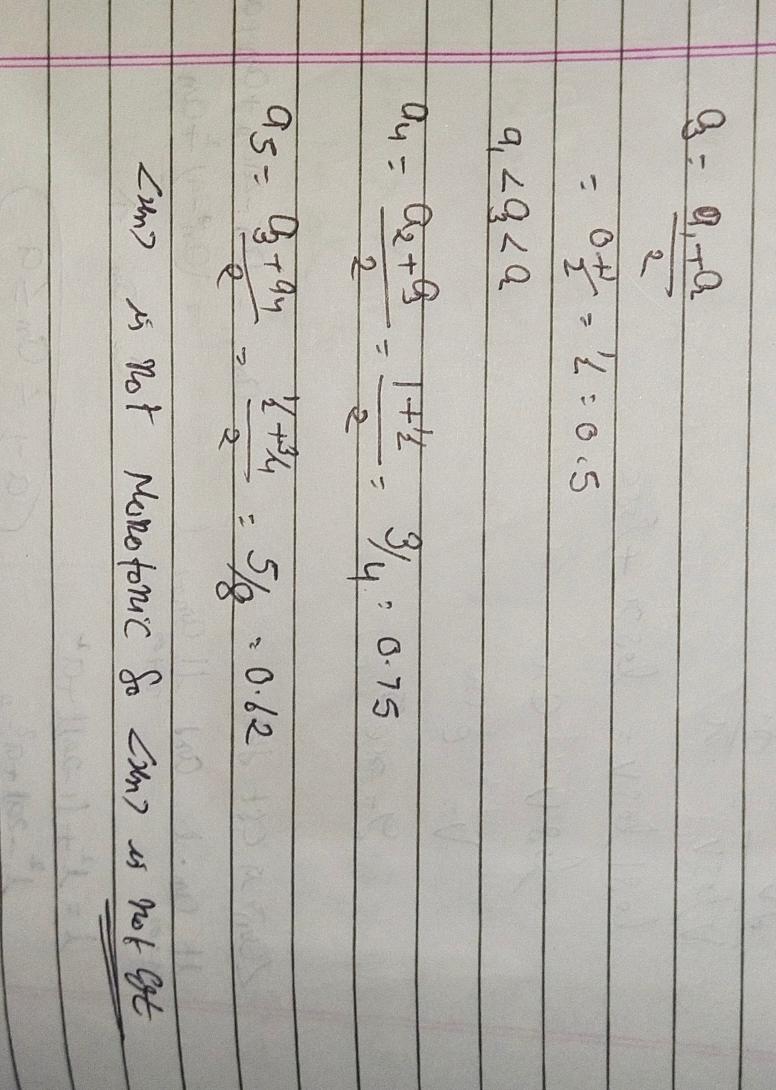 a3 = a1 + a2 / 2
= 0+1/2 = 1/2 = 0.5
a1 < a3 < a2
a4 = a2 + a3 / 2 = 1 + 1/2 / 2 = 3/4 = 0.75
a5 = a3 + a4 / 2 = 1/2 + 3/4 / 2 = 5/8 = 0.62
<xn> is not Monotonic So <xn> is not Cgt